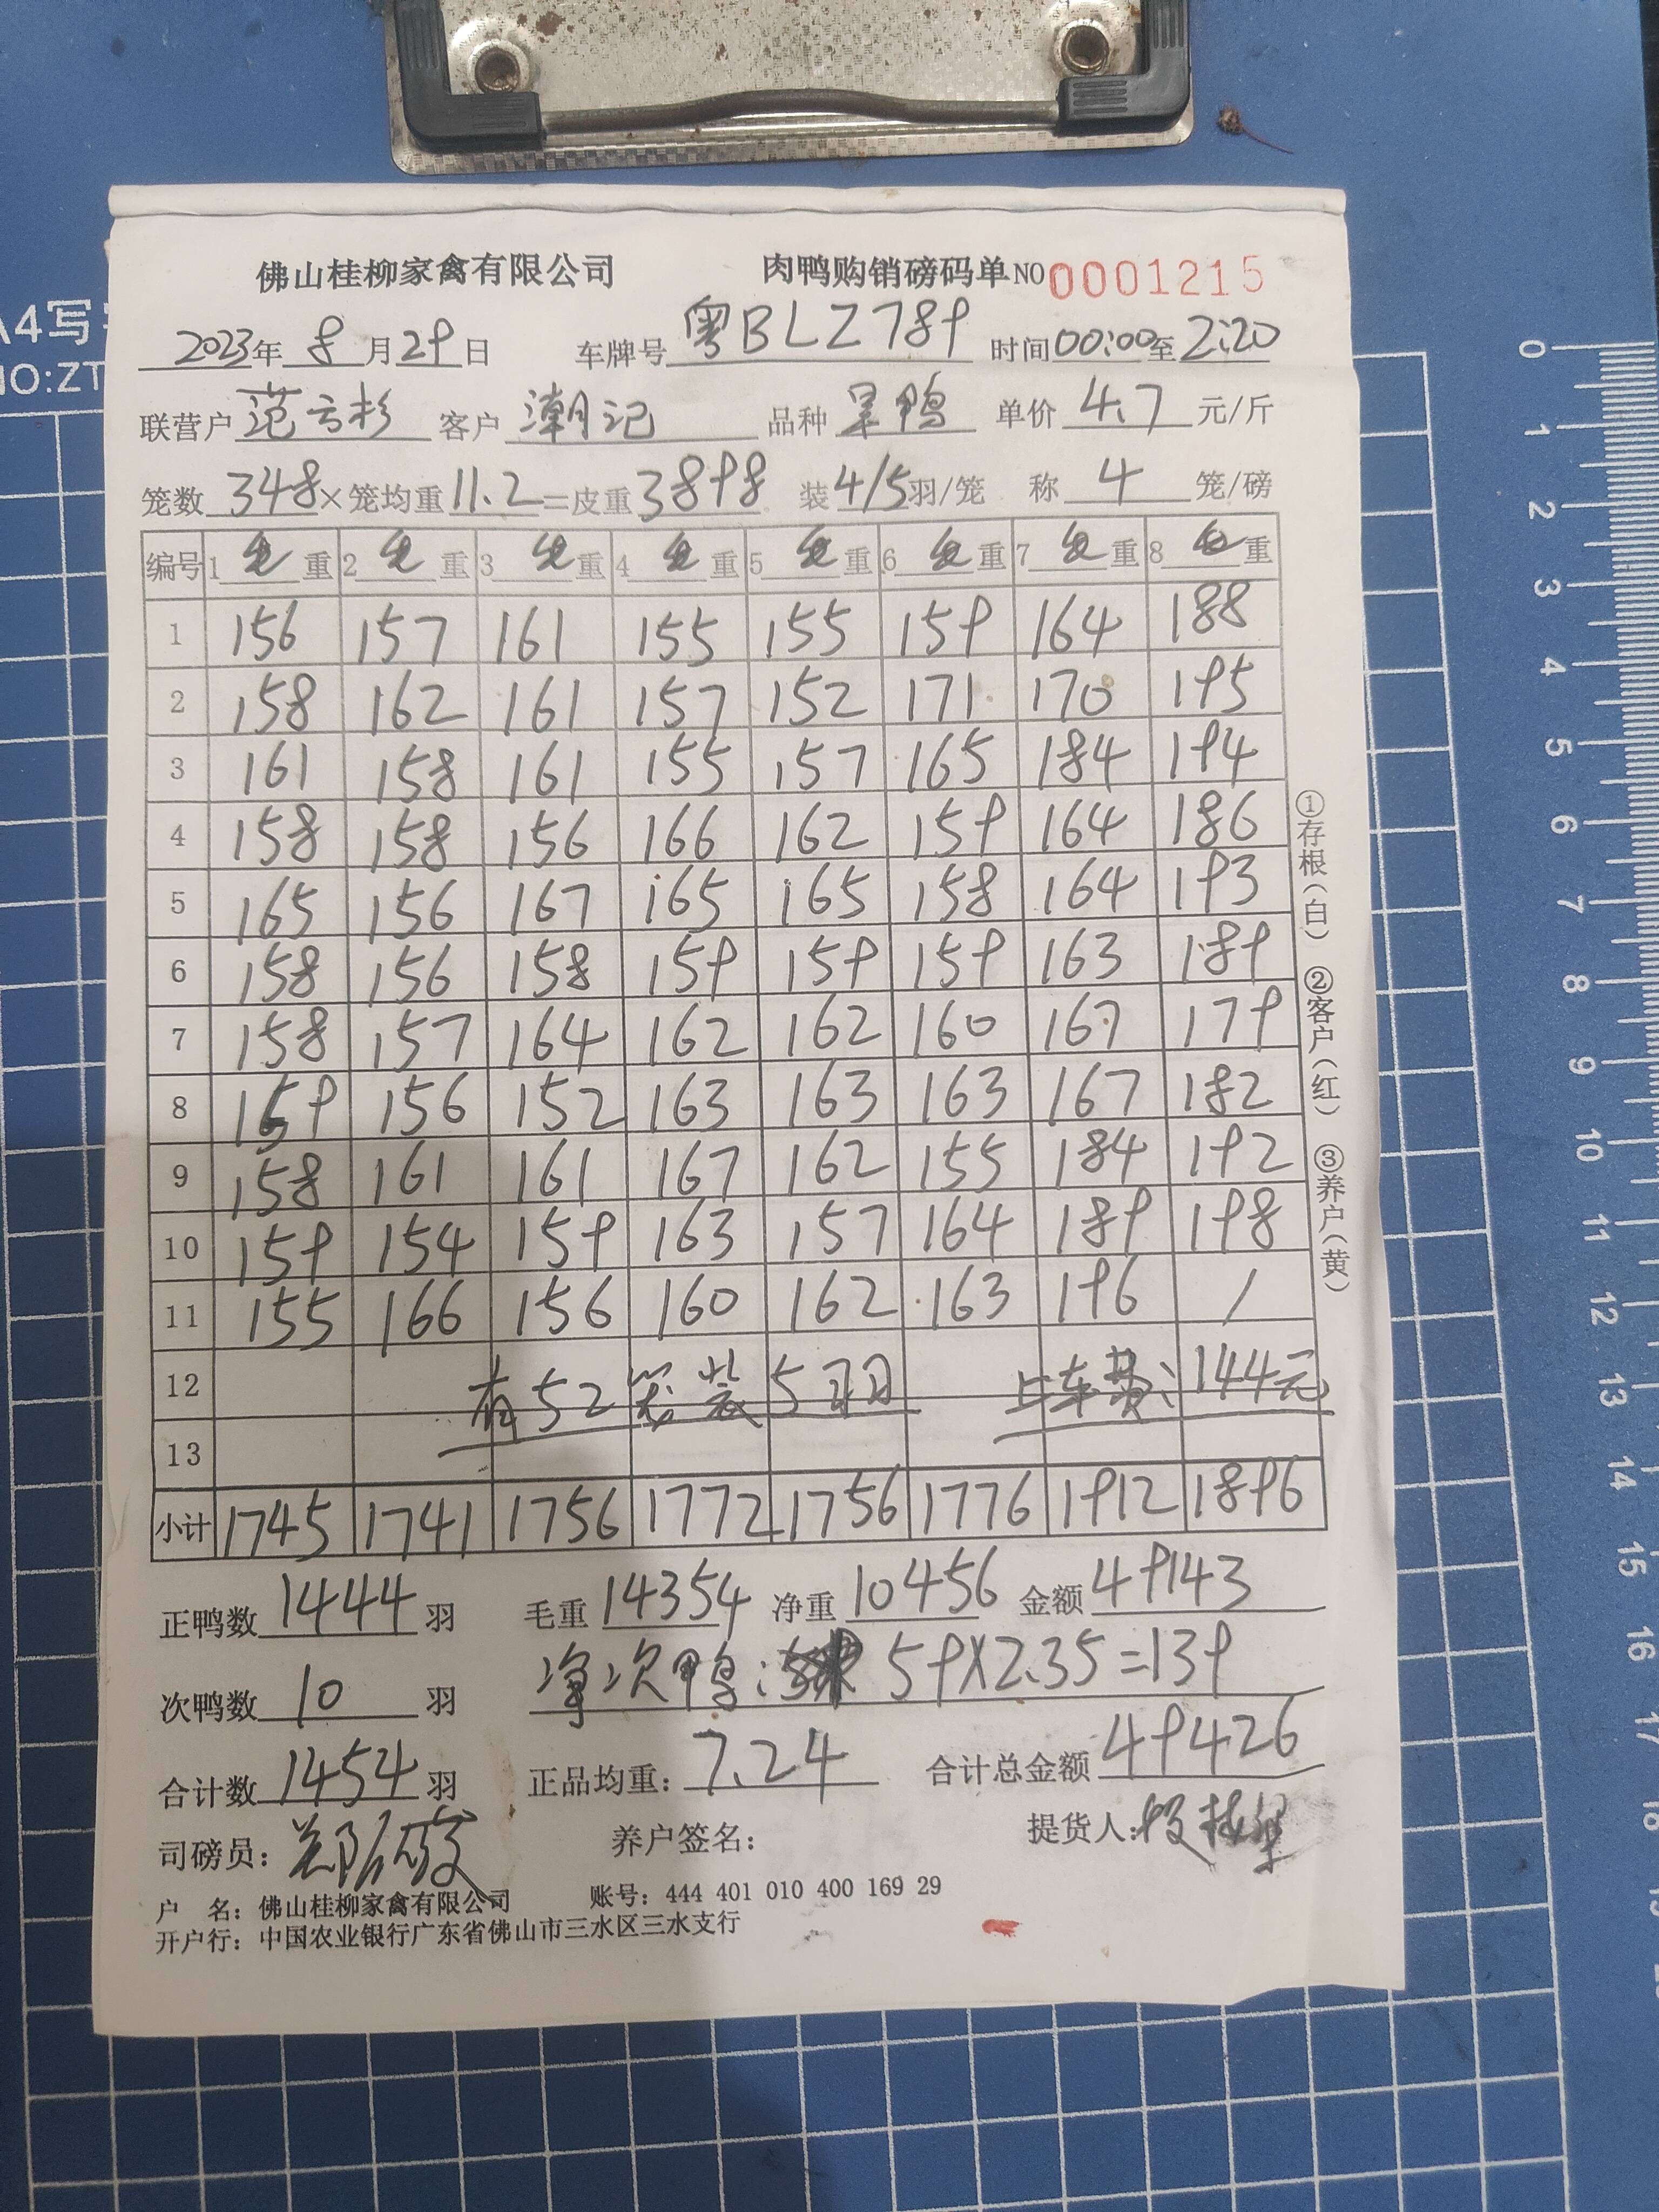 佛山桂柳家禽有限公司 肉鸭购销磅码单 NO 0001215
2023年 8月29日 车牌号 粤BLZ789 时间 00:00至2:20
联营户 范云杉 客户 潮记 品种 旱鸭 单价 4.7 元/斤
笼数 348×笼均重 11.2=皮重 3898 装 4/5羽/笼 称 4 笼/磅
编号 1 毛重 2 毛重 3 毛重 4 毛重 5 毛重 6 毛重 7 毛重 8 毛重
1 156 157 161 155 155 159 164 188
2 158 162 161 157 152 171 170 195
3 161 158 161 155 157 165 184 194
4 158 158 156 166 162 159 164 186
5 165 156 167 165 165 158 164 193
6 158 156 158 159 159 159 163 189
7 158 157 164 162 162 160 167 179
8 159 156 152 163 163 163 167 182
9 158 161 161 167 162 155 184 192
10 159 154 159 163 157 164 189 198
11 155 166 156 160 162 163 196 /
12 有52笼装5羽 上车费: 144元
13
小计 1745 1741 1756 1772 1756 1776 1912 1896
正鸭数 1444 羽 毛重 14354 净重 10456 金额 49143
次鸭数 10 羽 净次鸭: 59X2.35=139
合计数 1454 羽 正品均重: 7.24 合计总金额 49426
司磅员: 养户签名: 提货人:
户 名: 佛山桂柳家禽有限公司 账号: 444 401 010 400 169 29
开户行: 中国农业银行广东省佛山市三水区三水支行
①存根(白) ②客户(红) ③养户(黄)
A4写
NO:ZT
0
1
2
3
4
5
6
7
8
9
10
11
12
13
14
15
16
17
18